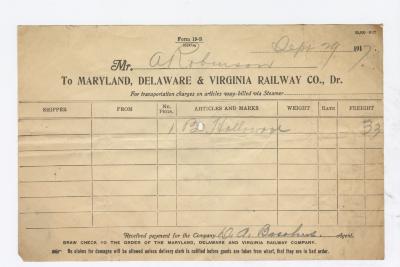 Form 19-S
Sept 29 1917.
Mr. A Robinson
To MARYLAND, DELAWARE & VIRGINIA RAILWAY CO., Dr.
For transportation charges on articles way-billed via Steamer
SHIPPER FROM No. Pkgs. ARTICLES AND MARKS WEIGHT RATE FREIGHT
1 B Holloware 33
Received payment for the Company, Agent.
DRAW CHECK TO THE ORDER OF THE MARYLAND, DELAWARE AND VIRGINIA RAILWAY COMPANY.
No claims for damages will be allowed unless delivery clerk is notified before goods are taken from wharf, that they are in bad order.